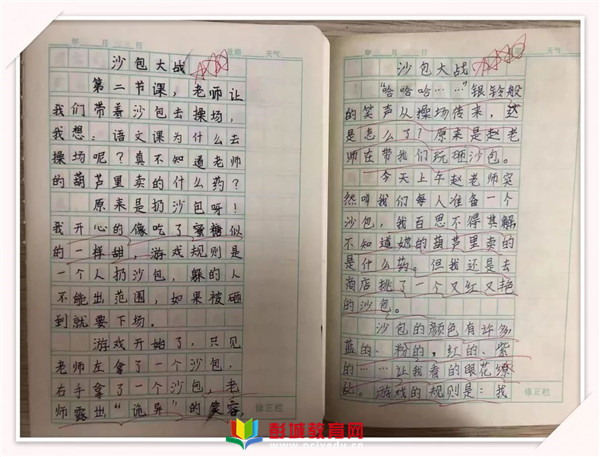 年 月 日 星期 天气
沙包大战
第二节课，老师让
我们带着沙包去操场，
我想：语文课为什么去
操场呢？真不知道老师
的葫芦里卖的什么药？
原来是扔沙包呀！
我开心的像吃了蜜糖似
的一样甜，游戏规则是
一个人扔沙包，躲的人
不能出范围，如果被砸
到就要下场。
游戏开始了，只见
老师左拿了一个沙包，
右手拿了一个沙包，老
师露出“诡异”的笑容，
年 月 日 星期 天气
沙包大战
“哈哈哈……”银铃般
的笑声从操场传来，这
是怎么了？原来是赵老
师在带我们玩砸沙包。
今天上午赵老师突
然叫我们每人准备一个
沙包，我百思不得其解，
不知道她的葫芦里卖的
是什么药。但我还是去
商店挑了一个又红又艳
的沙包。
沙包的颜色有许多
蓝的、粉的，红的、紫
的……让我看的眼花缭
乱。游戏的规则是：我
修正栏
彭城教育网